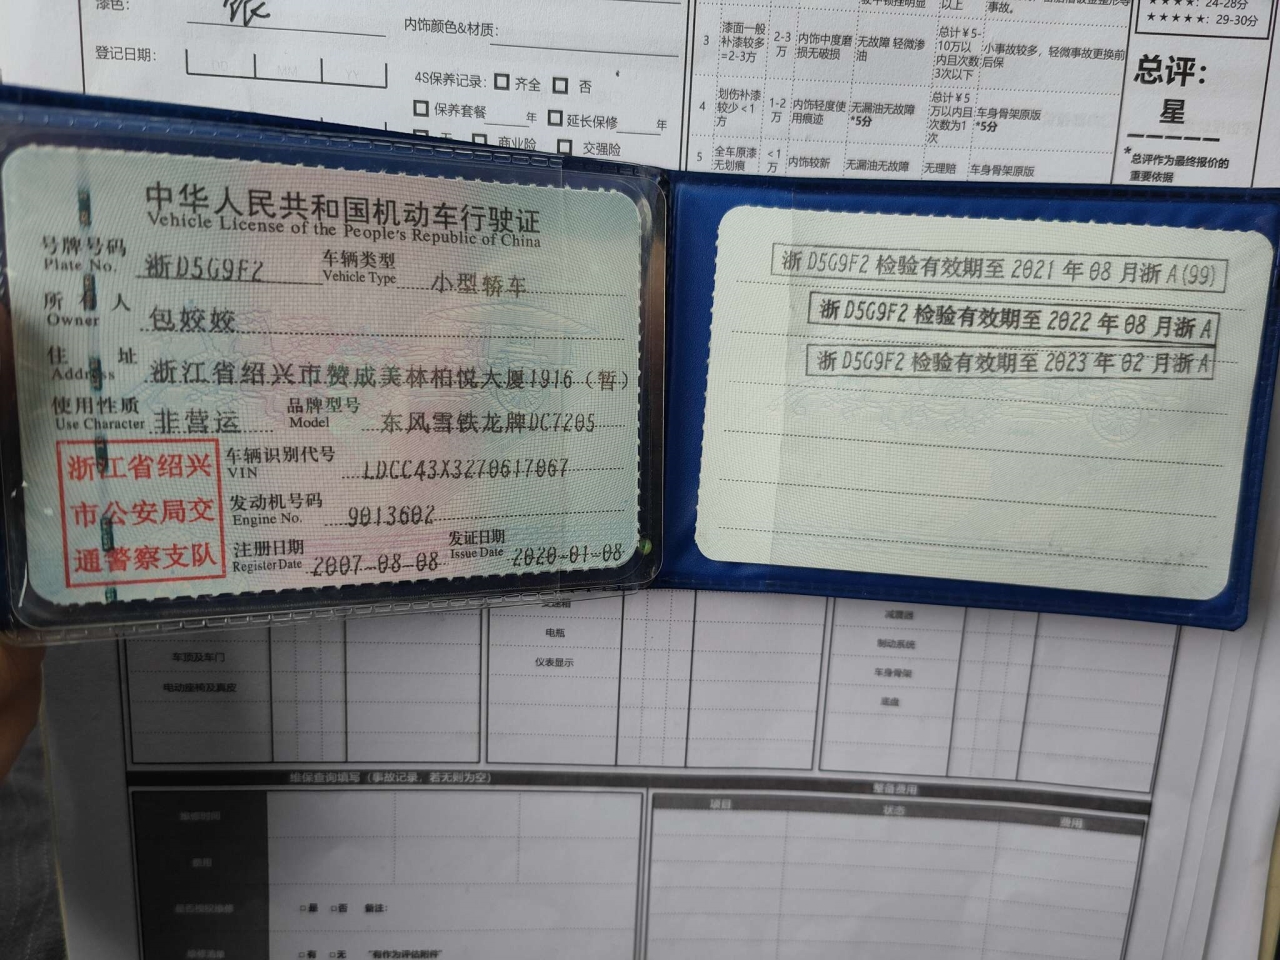 漆色：
银
内饰颜色&材质：
登记日期：
YY
MM
4S保养记录： 齐全 否
保养套餐 年 延长保修 年
商业险 交强险
以上
事故。
3 漆面一般补漆较多=2-3万 2-3万 内饰中度磨损无破损 无故障 轻微渗油 总计￥5-10万以内且次数3次以下 小事故较多，轻微事故更换前后保
4 划伤补漆较少<1万 1-2万 内饰轻度使用痕迹 无漏油无故障 *5分 总计￥5万以内且次数为1次 车身骨架原版 *5分
5 全车原漆无划痕 <1万 内饰较新 无漏油无故障 无理赔 车身骨架原版
★★★★：24-28分
★★★★★：29-30分
总评：
星
*总评作为最终报价的
重要依据
中华人民共和国机动车行驶证
Vehicle License of the People's Republic of China
号牌号码 浙D5G9F2 车辆类型 小型轿车
Plate No. Vehicle Type
所有人 包姣姣
Owner
住址 浙江省绍兴市赞成美林柏悦大厦1916（暂）
Address
使用性质 非营运 品牌型号 东风雪铁龙牌DC7205
Use Character Model
浙江省绍兴
市公安局交
通警察支队
车辆识别代号 LDCC43X3270617067
VIN
发动机号码 9013602
Engine No.
注册日期 2007-08-08 发证日期 2020-01-08
Register Date Issue Date
浙D5G9F2 检验有效期至 2021 年 08 月浙A(99)
浙D5G9F2 检验有效期至 2022 年 08 月浙A
浙D5G9F2 检验有效期至 2023 年 02 月浙A
变速箱 减震器
电瓶 制动系统
车顶及车门 仪表显示 车身骨架
电动座椅及真皮 底盘
维保查询填写（事故记录，若无则为空） 整备费用
项目 状态 费用
□是 □否 备注：
□有 □无 "有作为评估附件"